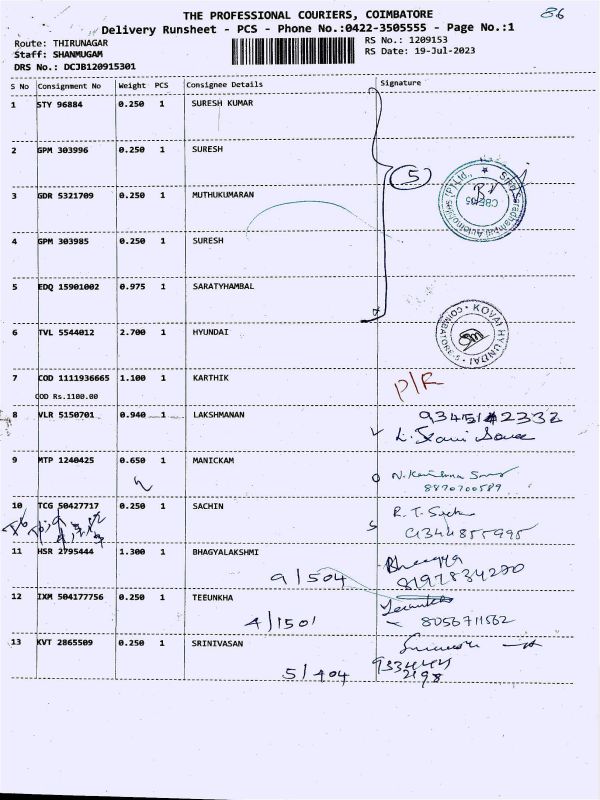 THE PROFESSIONAL COURIERS, COIMBATORE
86
Delivery Runsheet - PCS - Phone No.:0422-3505555 - Page No.:1
Route: THIRUNAGAR
RS No.: 1209153
Staff: SHANMUGAM
RS Date: 19-Jul-2023
DRS No.: DCJB120915301
S No Consignment No Weight PCS Consignee Details Signature
1 STY 96884 0.250 1 SURESH KUMAR
2 GPM 303996 0.250 1 SURESH
5
3 GDR 5321709 0.250 1 MUTHUKUMARAN
4 GPM 303985 0.250 1 SURESH
5 EDQ 15901002 0.975 1 SARATYHAMBAL
6 TVL 5544012 2.700 1 HYUNDAI
KOVAI HYUNDAI
COIMBATORE-5
7 COD 1111936665 1.100 1 KARTHIK
P/R
COD Rs.1100.00
8 VLR 5150701 0.940 1 LAKSHMANAN
9 MTP 1240425 0.650 1 MANICKAM
8870700589
10 TCG 50427717 0.250 1 SACHIN
R. T.
11 HSR 2795444 1.300 1 BHAGYALAKSHMI
Bhagya
9/504
8197834290
12 IXM 504177756 0.250 1 TEEUNKHA
4/1501
8056711562
13 KVT 2865509 0.250 1 SRINIVASAN
5/404